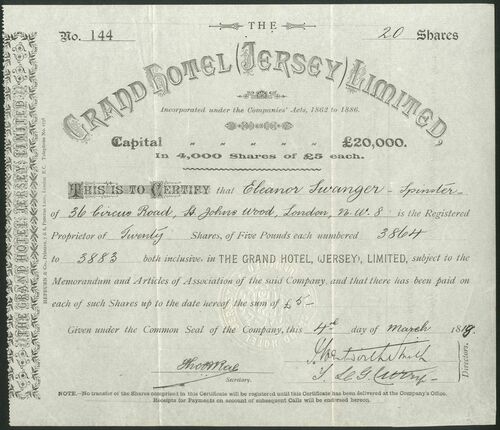 THE
No. 144 20 Shares
GRAND HOTEL (JERSEY) LIMITED,
Incorporated under the Companies' Acts, 1862 to 1886.
Capital " " " " " £20,000.
In 4,000 Shares of £5 each.
THIS IS TO CERTIFY that Eleanor Swanger - Spinster -
of 56 Circus Road, St Johns Wood, London, N.W.8 is the Registered
Proprietor of Twenty Shares, of Five Pounds each numbered 3864
to 3883 both inclusive, in THE GRAND HOTEL, (JERSEY), LIMITED, subject to the
Memorandum and Articles of Association of the said Company, and that there has been paid
on each of such Shares up to the date hereof the sum of £5-
Given under the Common Seal of the Company, this 4th day of March
Secretary.
Directors.
NOTE.—No transfer of the Shares comprised in this Certificate will be registered until this Certificate has been delivered at the Company's Office.
Receipts for Payments on account of subsequent Calls will be endorsed hereon.
THE GRAND HOTEL (JERSEY) LIMITED